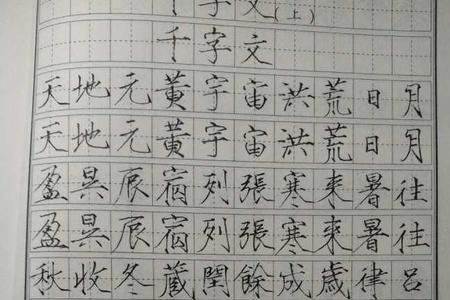 千字文(上)
千字文
天地元黃宇宙洪荒日月
天地元黃宇宙洪荒日月
盈昃辰宿列張寒来暑往
盈昃辰宿列張寒來暑往
秋收冬藏閏餘成歲律呂